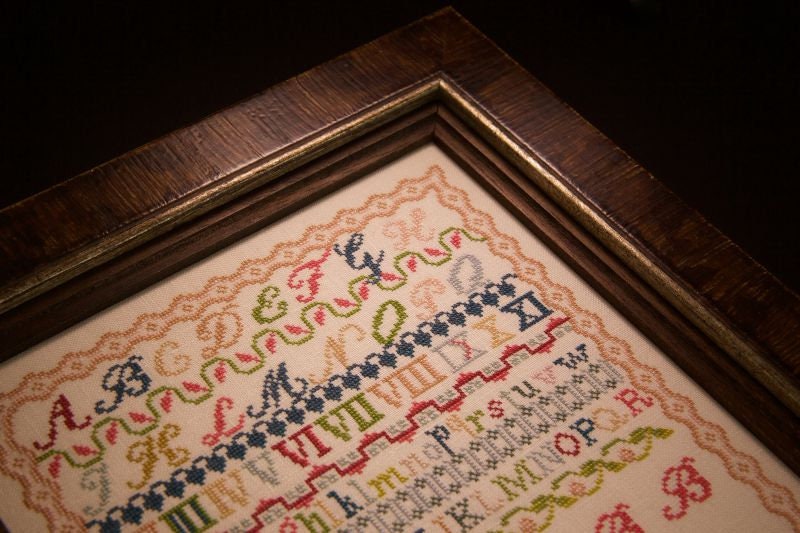 A B C D E F G H
J K L M N O P Q
III IV V VI VII VIII IX X XI
h k l m n o p q r s t u v w
I K L M N O P Q R
A B